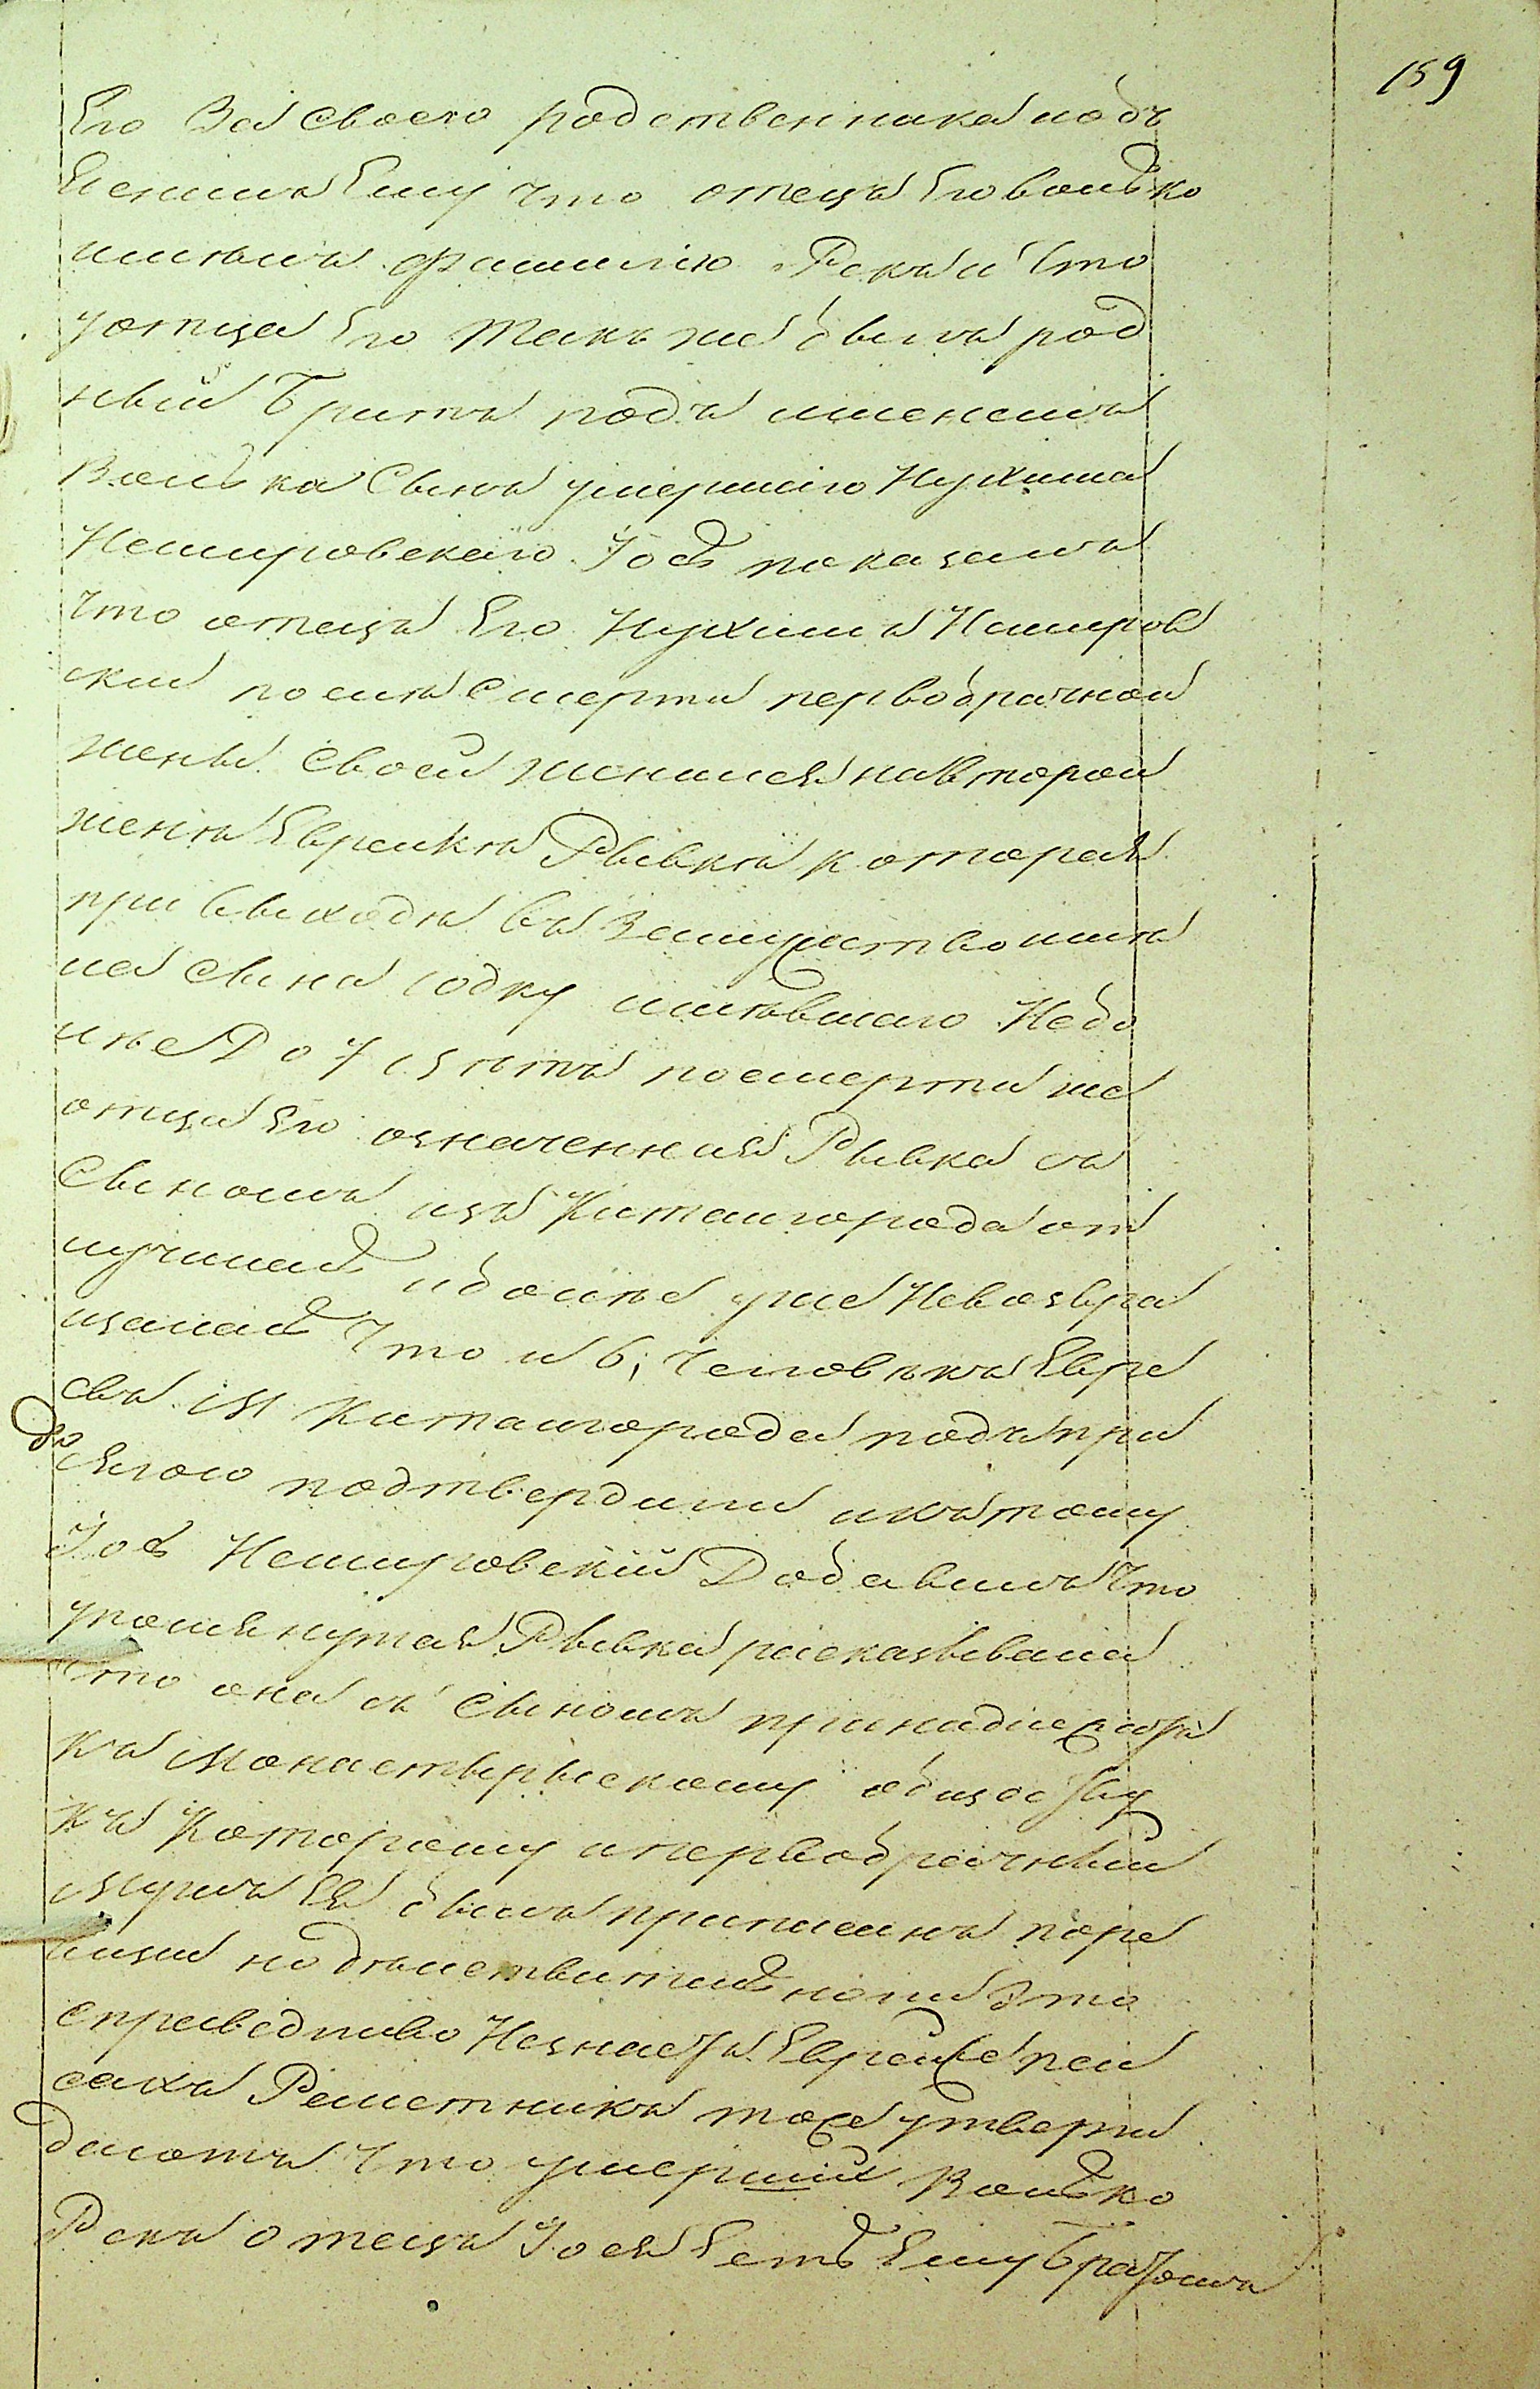 159
Его За своего родственника изъ
Яснилъ Ему что отецъ Его Волько
имѣлъ фамилію Рекъ и что
уотца Его также былъ род
ный братъ подъ именемъ
Волька Сынъ умершаго Нухима
Немировскаго Іось показалъ
что отецъ Его Нухимъ Немиров
ский послѣ Смерти первобрачной
жены своей женился навторой
женѣ Еврейкѣ Рывкѣ которая
при выходѣ въ Замужство имѣ
ла сына Юдку имѣвшаго Небо
лѣе До 7 лѣтъ посмерти же
отца Его означенная Рывка съ
Сыномъ изъ Китайгорода от
лучилась иболѣе уже Невозвра
щалась Что и 6; Человѣкъ Евре
евъ М Китайгорода подъ при
сягою подтвердили икътому
Іось Немировскій Добавилъ Что
упомянутая Рывка расказывала
что она съ Сыномъ принадлежатъ
къ Монастырыскому обществу
къ Которому ипервобрачный
мужъ Ея былъ приписанъ поре
визіи но дѣйствительноли Это
справедливо Незнаетъ. Еврей же Пей
сахъ Решетникъ тоже утверж
даетъ Что умершій Волько
Рекъ отецъ Іося Есть Ему Братомъ